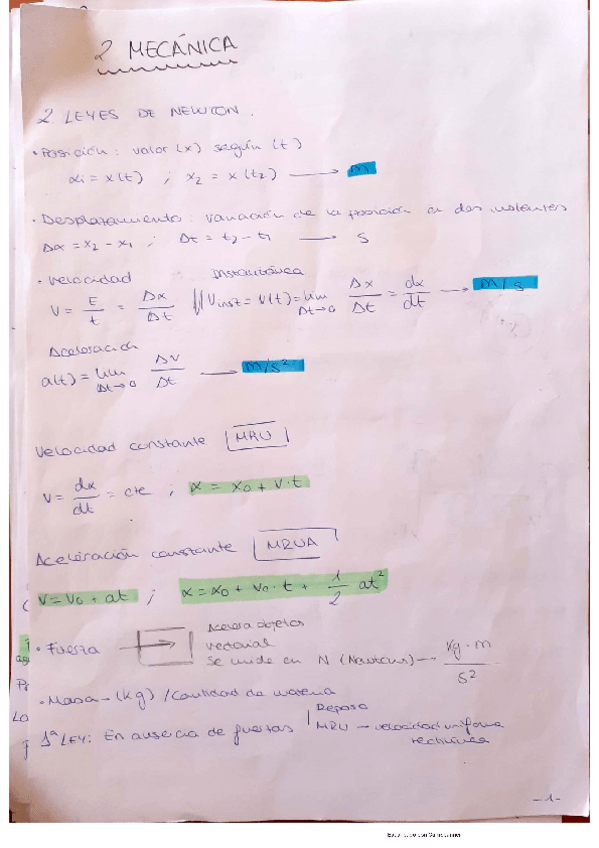 2 MECÁNICA
2 LEYES DE NEWTON.
• Posición: valor (x) según (t)
x₁ = x(t) ; x₂ = x(t₂) → m
• Desplazamiento: variación de la posición en dos instantes
Δx = x₂ - x₁ ; Δt = t₂ - t₁ → s
• Velocidad Instantánea
V = E/t = Δx/Δt // V inst = v(t) = lim Δt→0 Δx/Δt = dx/dt → m/s
Aceleración
a(t) = lim Δt→0 Δv/Δt → m/s²
Velocidad constante MRU
V = dx/dt = cte ; x = x₀ + v·t
Aceleración constante MRUA
V = V₀ + at ; x = x₀ + v₀·t + 1/2 at²
• Fuerza → Acelera objetos
vectorial
Se mide en N (Newtons) — Kg·m/s²
• Masa - (Kg) / Cantidad de materia
1ª LEY: En ausencia de fuerzas | Reposo
MRU — velocidad uniforme
rectilínea
-1-